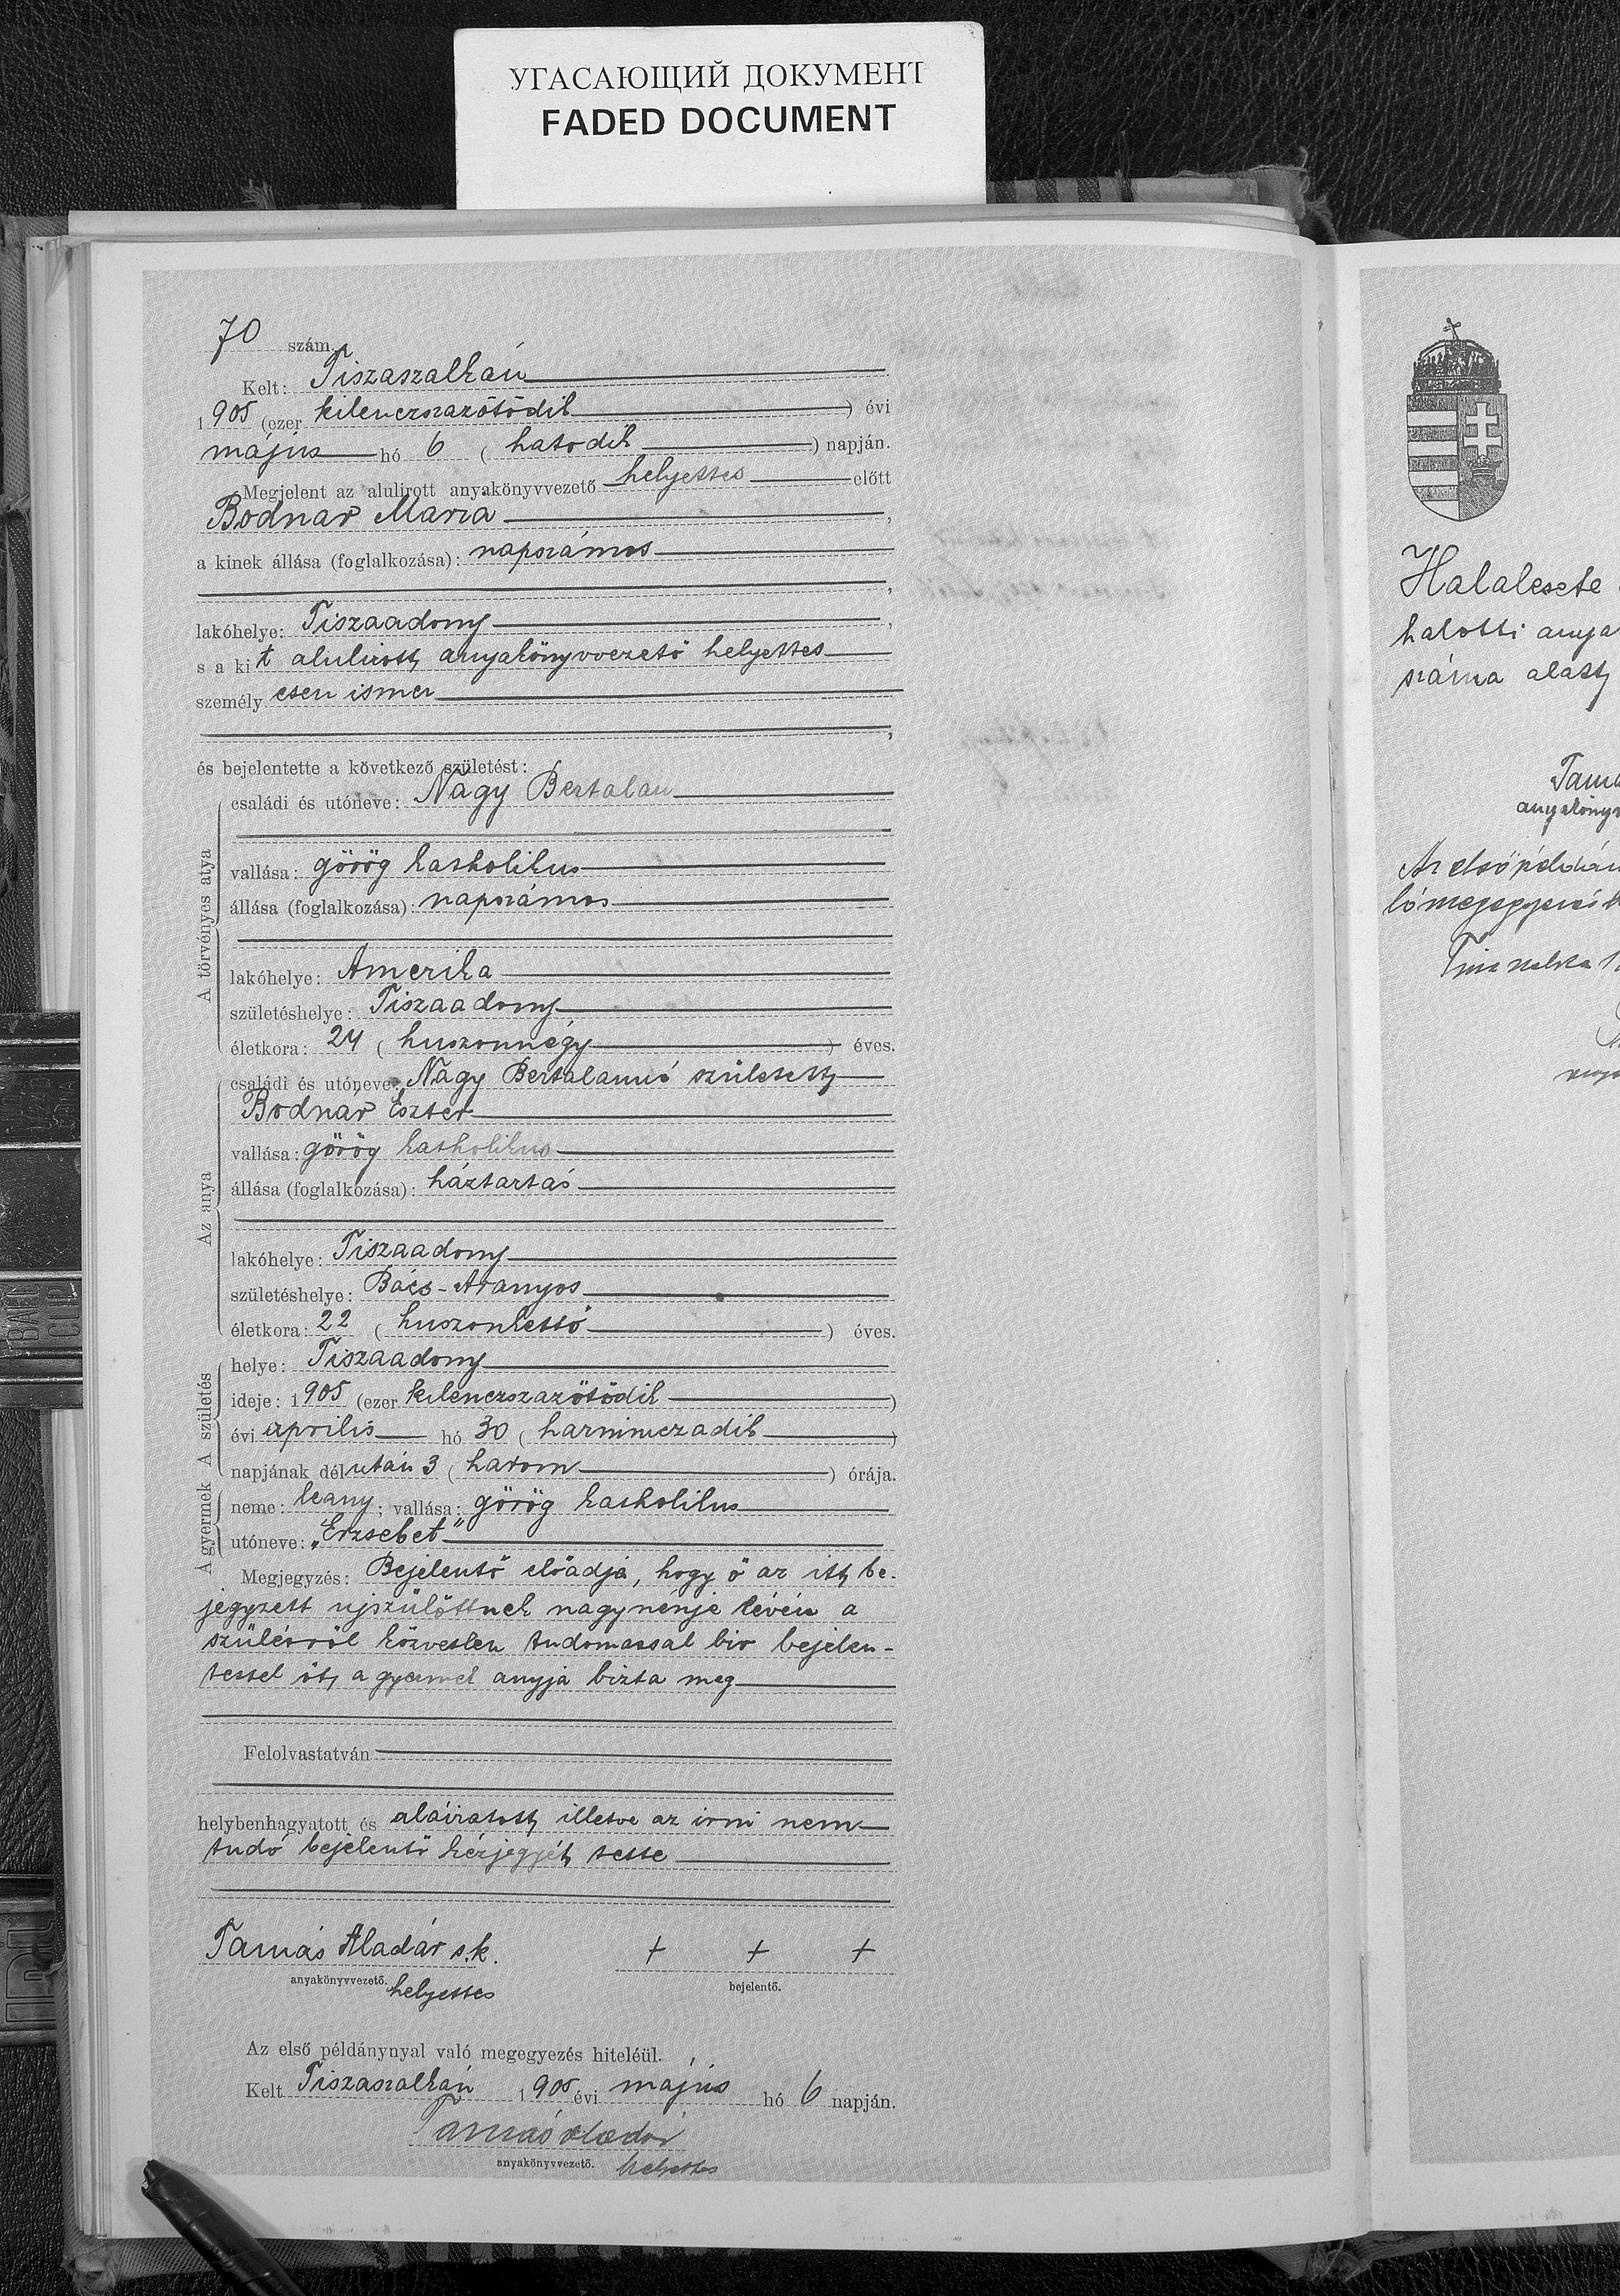 УГАСАЮЩИЙ ДОКУМЕНТ
FADED DOCUMENT
70 szám.
Kelt: Tiszaszalkán
1905 (ezer kilenczszazötödik) évi
május hó 6 (hatodik) napján.
Megjelent az alulirott anyakönyvvezető helyettes előtt
Bodnar Maria,
a kinek állása (foglalkozása): napszámos
,
lakóhelye: Tiszaadony,
s a kit alulirott anyakönyvvezető helyettes
személyesen ismer
,
és bejelentette a következő születést:
A törvényes atya
családi és utóneve: Nagy Bertalan
vallása: görög katholikus
állása (foglalkozása): napszámos
lakóhelye: Amerika
születéshelye: Tiszaadony
életkora: 24 (huszonnégy) éves.
Az anya
családi és utóneve: Nagy Bertalanné született
Bodnár Eszter
vallása: görög katholikus
állása (foglalkozása): háztartás
lakóhelye: Tiszaadony
születéshelye: Bács-Aranyos
életkora: 22 (huszonkettő) éves.
A születés
helye: Tiszaadony
ideje: 1905 (ezer kilenczszazötödik)
évi április hó 30 (harminczadik)
napjának délután 3 (harom) órája.
A gyermek
neme: leany; vallása: görög katholikus
utóneve: „Erzsebet"
Megjegyzés: Bejelentő előadja, hogy ő az itt be-
jegyzett ujszülöttnek nagynénje lévén a
szülésről közvetlen tudomassal bir bejelen-
tessel őt, a gyermek anyja bizta meg
Felolvastatván
helybenhagyatott és aláiratott, illetve az irni nem
tudó bejelentő kézjegyét tette
Tamás Aladár s.k. + + +
anyakönyvvezető. helyettes bejelentő.
Az első példánynyal való megegyezés hiteléül.
Kelt Tiszaszalkán 1905 évi május hó 6 napján.
Tamás Aladár
anyakönyvvezető. helyettes
Halalesete
halotti anya
száma alatt
Tama
anyakönyv
Az első példán